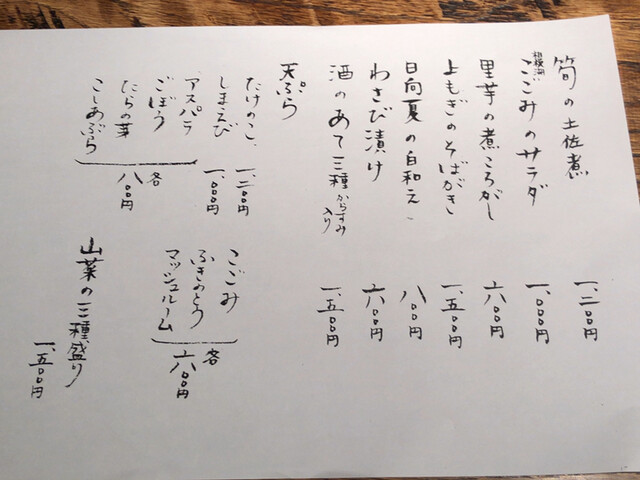 筍の土佐煮 一、二〇〇円
こごみのサラダ 一、〇〇〇円
里芋の煮ころがし 六〇〇円
よもぎのそばがき 一、五〇〇円
日向夏の白和え 八〇〇円
わさび漬け 六〇〇円
酒のあて三種 からすみ入り 一、五〇〇円
天ぷら
たけのこ 一、二〇〇円
しまえび 一、〇〇〇円
アスパラ
ごぼう
たらの芽
こしあぶら
各八〇〇円
こごみ
ふきのとう
マッシュルーム
各六〇〇円
山菜の三種盛り 一、五〇〇円